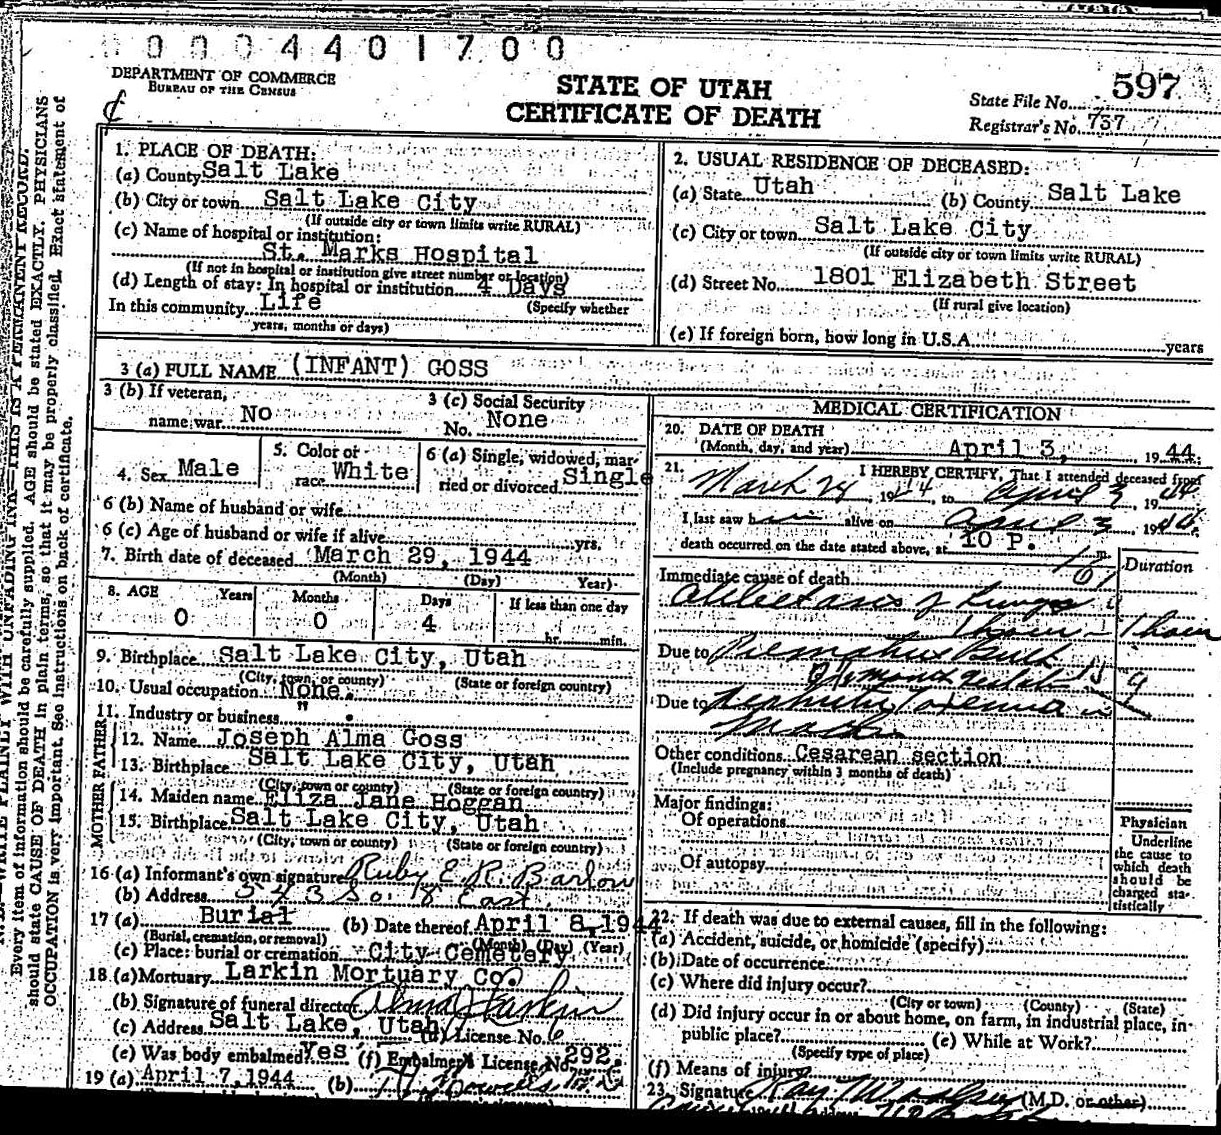 0004401700
DEPARTMENT OF COMMERCE
BUREAU OF THE CENSUS
STATE OF UTAH
CERTIFICATE OF DEATH
State File No. 597
Registrar's No. 737
1. PLACE OF DEATH:
(a) County Salt Lake
(b) City or town Salt Lake City
(If outside city or town limits write RURAL)
(c) Name of hospital or institution:
St. Marks Hospital
(If not in hospital or institution give street number or location)
(d) Length of stay: In hospital or institution 4 Days
In this community Life (Specify whether
years, months or days)
2. USUAL RESIDENCE OF DECEASED:
(a) State Utah (b) County Salt Lake
(c) City or town Salt Lake City
(If outside city or town limits write RURAL)
(d) Street No. 1801 Elizabeth Street
(If rural give location)
(e) If foreign born, how long in U.S.A. years
3 (a) FULL NAME (INFANT) GOSS
3 (b) If veteran,
name war No
3 (c) Social Security
No. None
4. Sex Male
5. Color or
race White
6 (a) Single, widowed, mar-
ried or divorced Single
6 (b) Name of husband or wife
6 (c) Age of husband or wife if alive yrs.
7. Birth date of deceased March 29, 1944
(Month) (Day) Year)
8. AGE Years Months Days If less than one day
0 0 4 hr. min.
9. Birthplace Salt Lake City, Utah
(City, town, or county) (State or foreign country)
10. Usual occupation None.
11. Industry or business " .
FATHER
12. Name Joseph Alma Goss
13. Birthplace Salt Lake City, Utah
(City, town or county) (State or foreign country)
MOTHER
14. Maiden name Eliza Jane Hoggan
15. Birthplace Salt Lake City, Utah
(City, town or county) (State or foreign country)
16 (a) Informant's own signature Ruby E. R. Barlow
(b) Address 543 So. 18 East.
17 (a) Burial (b) Date thereof April 8, 1944
(Burial, cremation, or removal) (Month) (Day) (Year)
(c) Place: burial or cremation City Cemetery
18 (a) Mortuary Larkin Mortuary Co.
(b) Signature of funeral director Alma Larkin
(c) Address Salt Lake, Utah (d) License No. 6
(e) Was body embalmed? Yes (f) Embalmer's License No. 292.
19 (a) April 7, 1944 (b)
MEDICAL CERTIFICATION
20. DATE OF DEATH
(Month, day, and year) April 3, 1944.
21. I HEREBY CERTIFY, That I attended deceased from
March 29 1944, to April 3 1944
I last saw h alive on April 3 1944
death occurred on the date stated above, at 10 P. m.
Duration
Immediate cause of death
of Lungs
1 hour - 1 hour
Due to Birth
Due to
Other conditions Cesarean section
(Include pregnancy within 3 months of death)
Major findings:
Of operations
Of autopsy
Physician
Underline
the cause to
which death
should be
charged sta-
tistically
22. If death was due to external causes, fill in the following:
(a) Accident, suicide, or homicide (specify)
(b) Date of occurrence
(c) Where did injury occur?
(City or town) (County) (State)
(d) Did injury occur in or about home, on farm, in industrial place, in
public place? (e) While at Work?
(Specify type of place)
(f) Means of injury
23. Signature (M.D. or other)
N. B.—WRITE PLAINLY WITH UNFADING INK—THIS IS A PERMANENT RECORD.
Every item of information should be carefully supplied. AGE should be stated EXACTLY. PHYSICIANS
should state CAUSE OF DEATH in plain terms, so that it may be properly classified. Exact statement of
OCCUPATION is very important. See instructions on back of certificate.